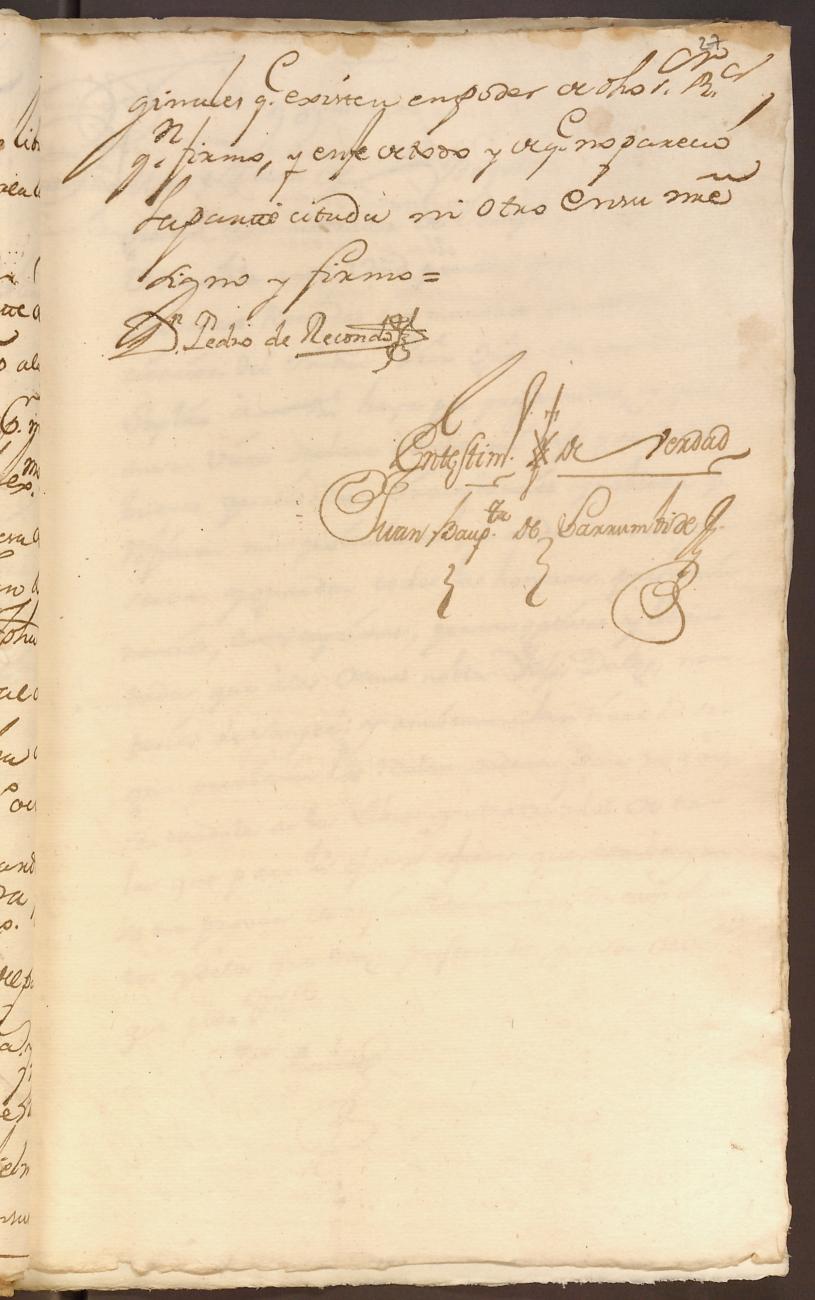 27
ginales q.e existen en poder de dho s.r R.or
q.n firmo, y en fe de todo y de q.e no parecio
la parte citada ni otro en su nre
signo y firmo =
D.n Pedro de Recondo
En testim.o de Verdad
Juan Baup.ta de Larrumbide